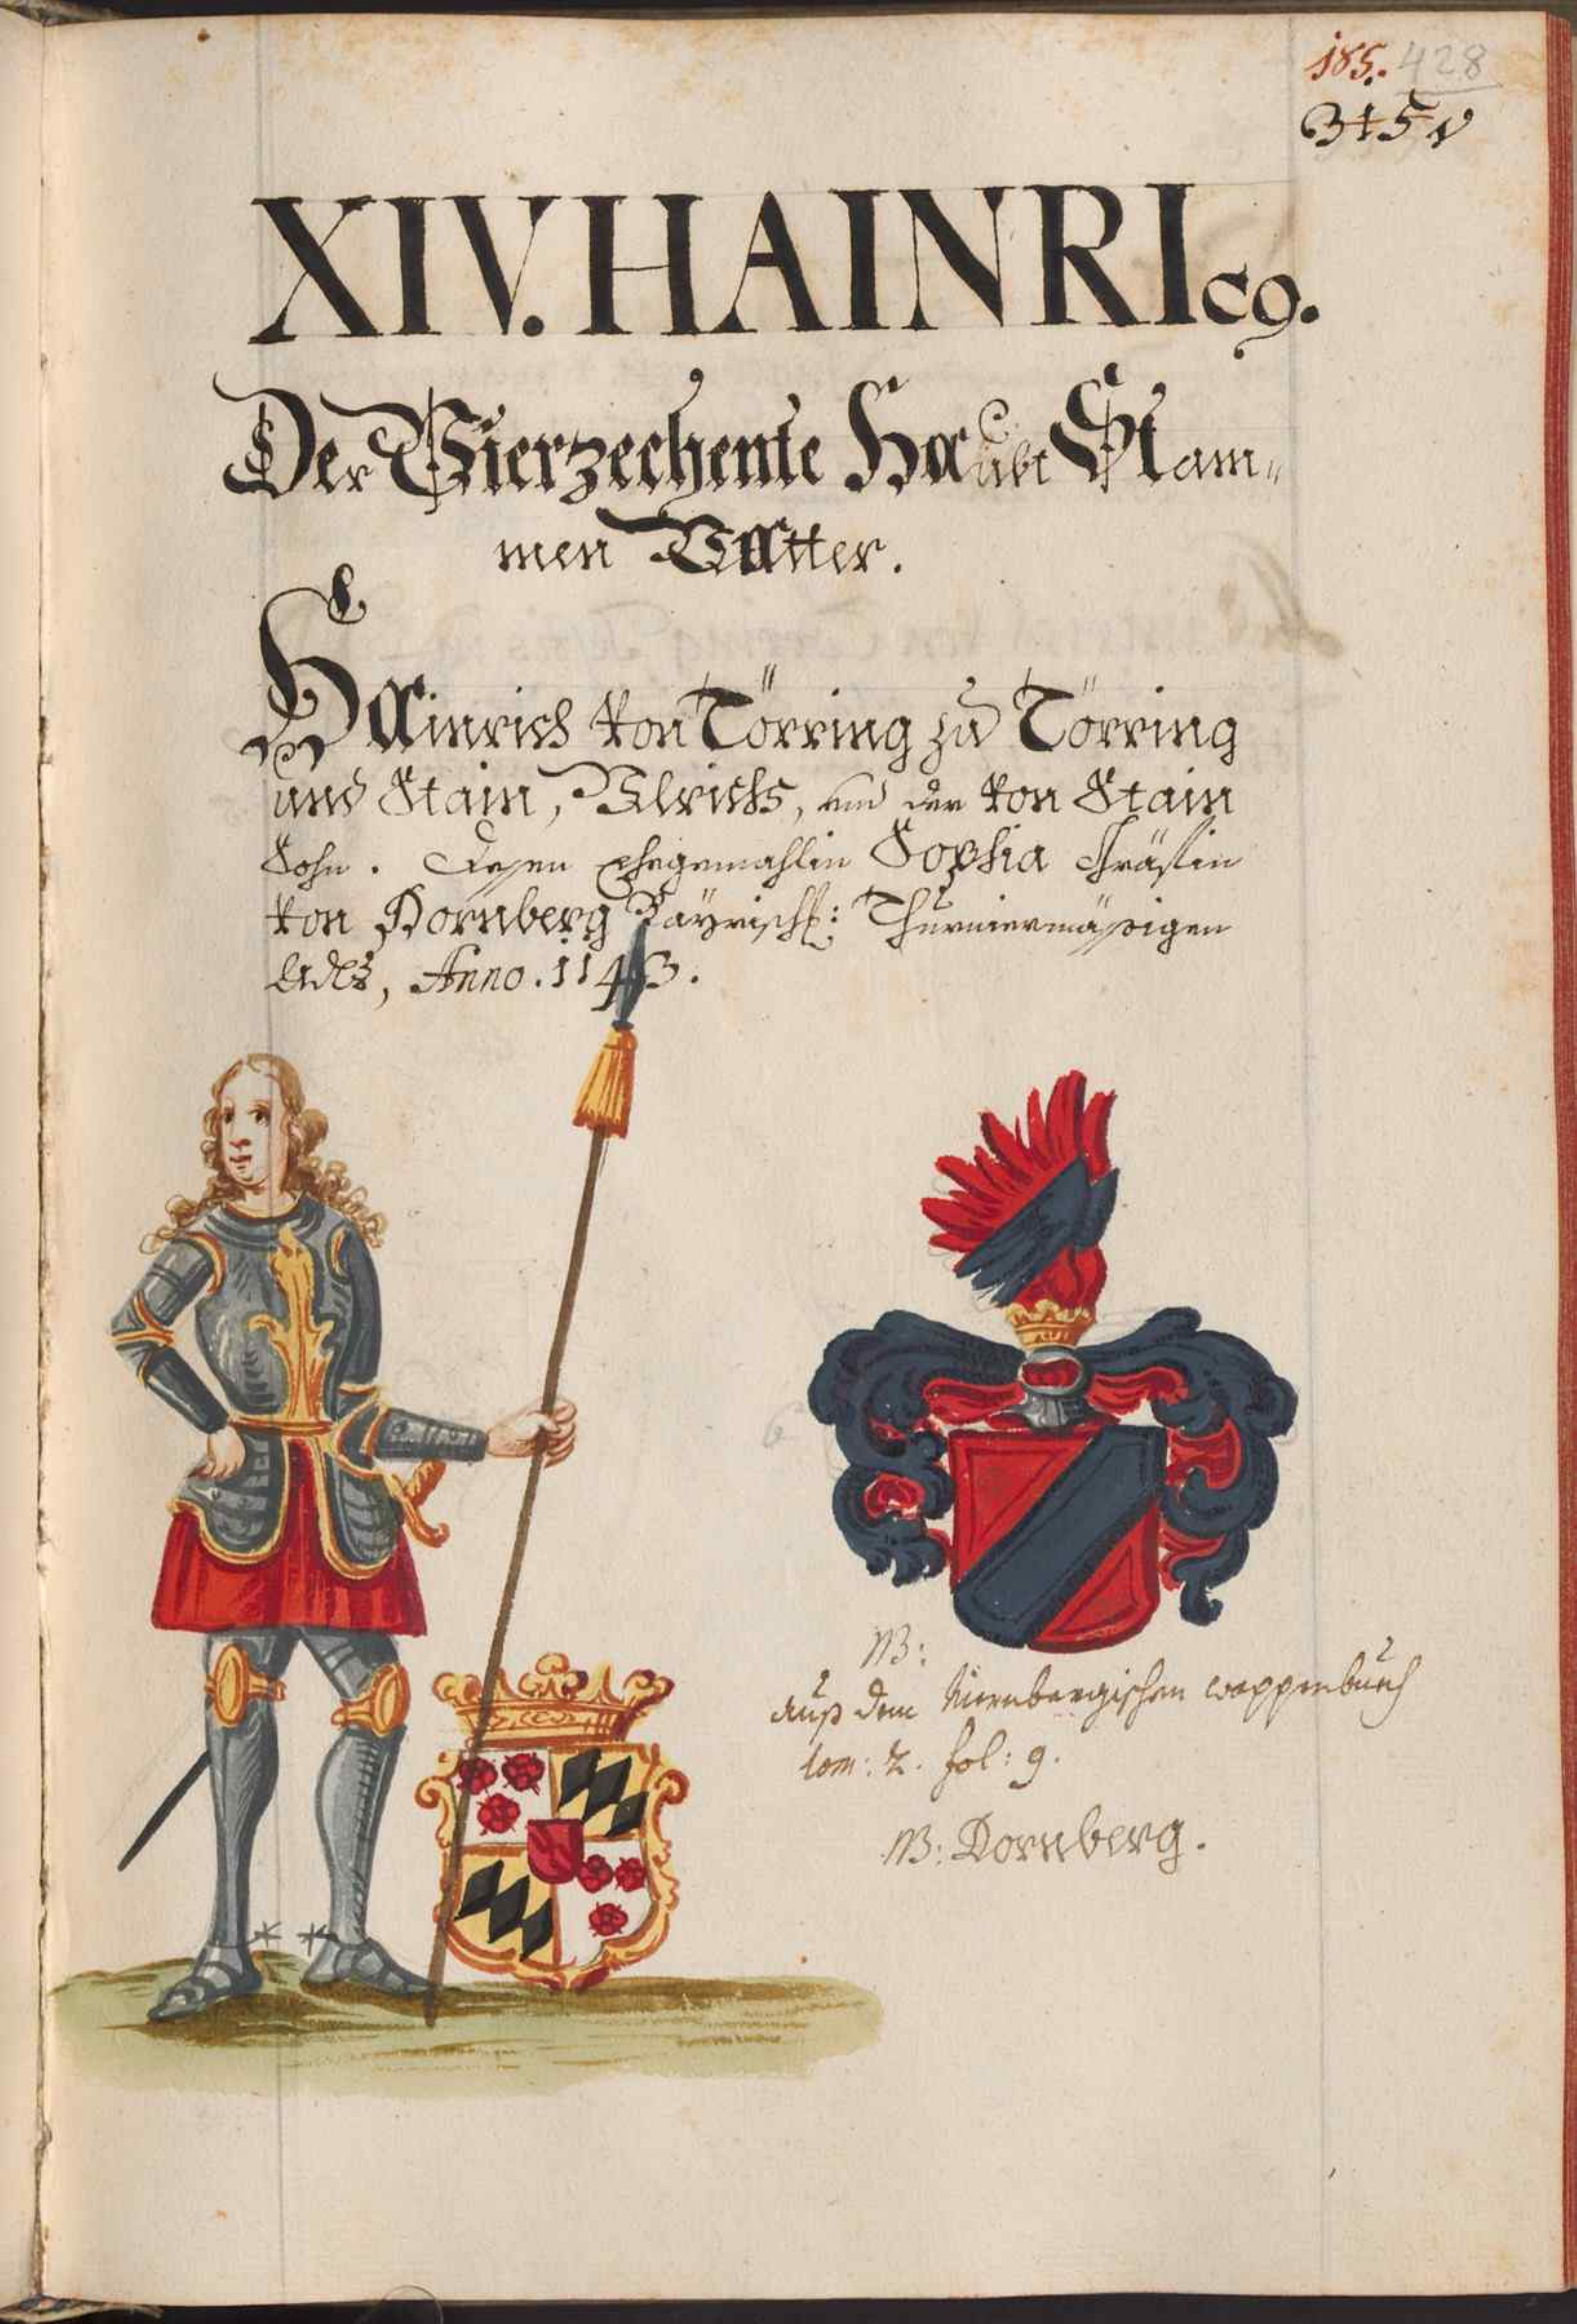 185. 428
345
XIV. HAINRIcꝰ.
Der Vierzechente Haubt Stam„
men Vatter.
Hainrich von Törring zu Törring
und Stain, Ulrichs, und der von Stain
Sohn. Dessen Ehegemahlin Sophia Gräffin
von Dornberg Bayrisch: Thurniermässigen
Adls, Anno. 1143.
NB:
Auß dem Niernbergischen wappenbuech
tom: 2. fol: 9.
NB: Dornberg.